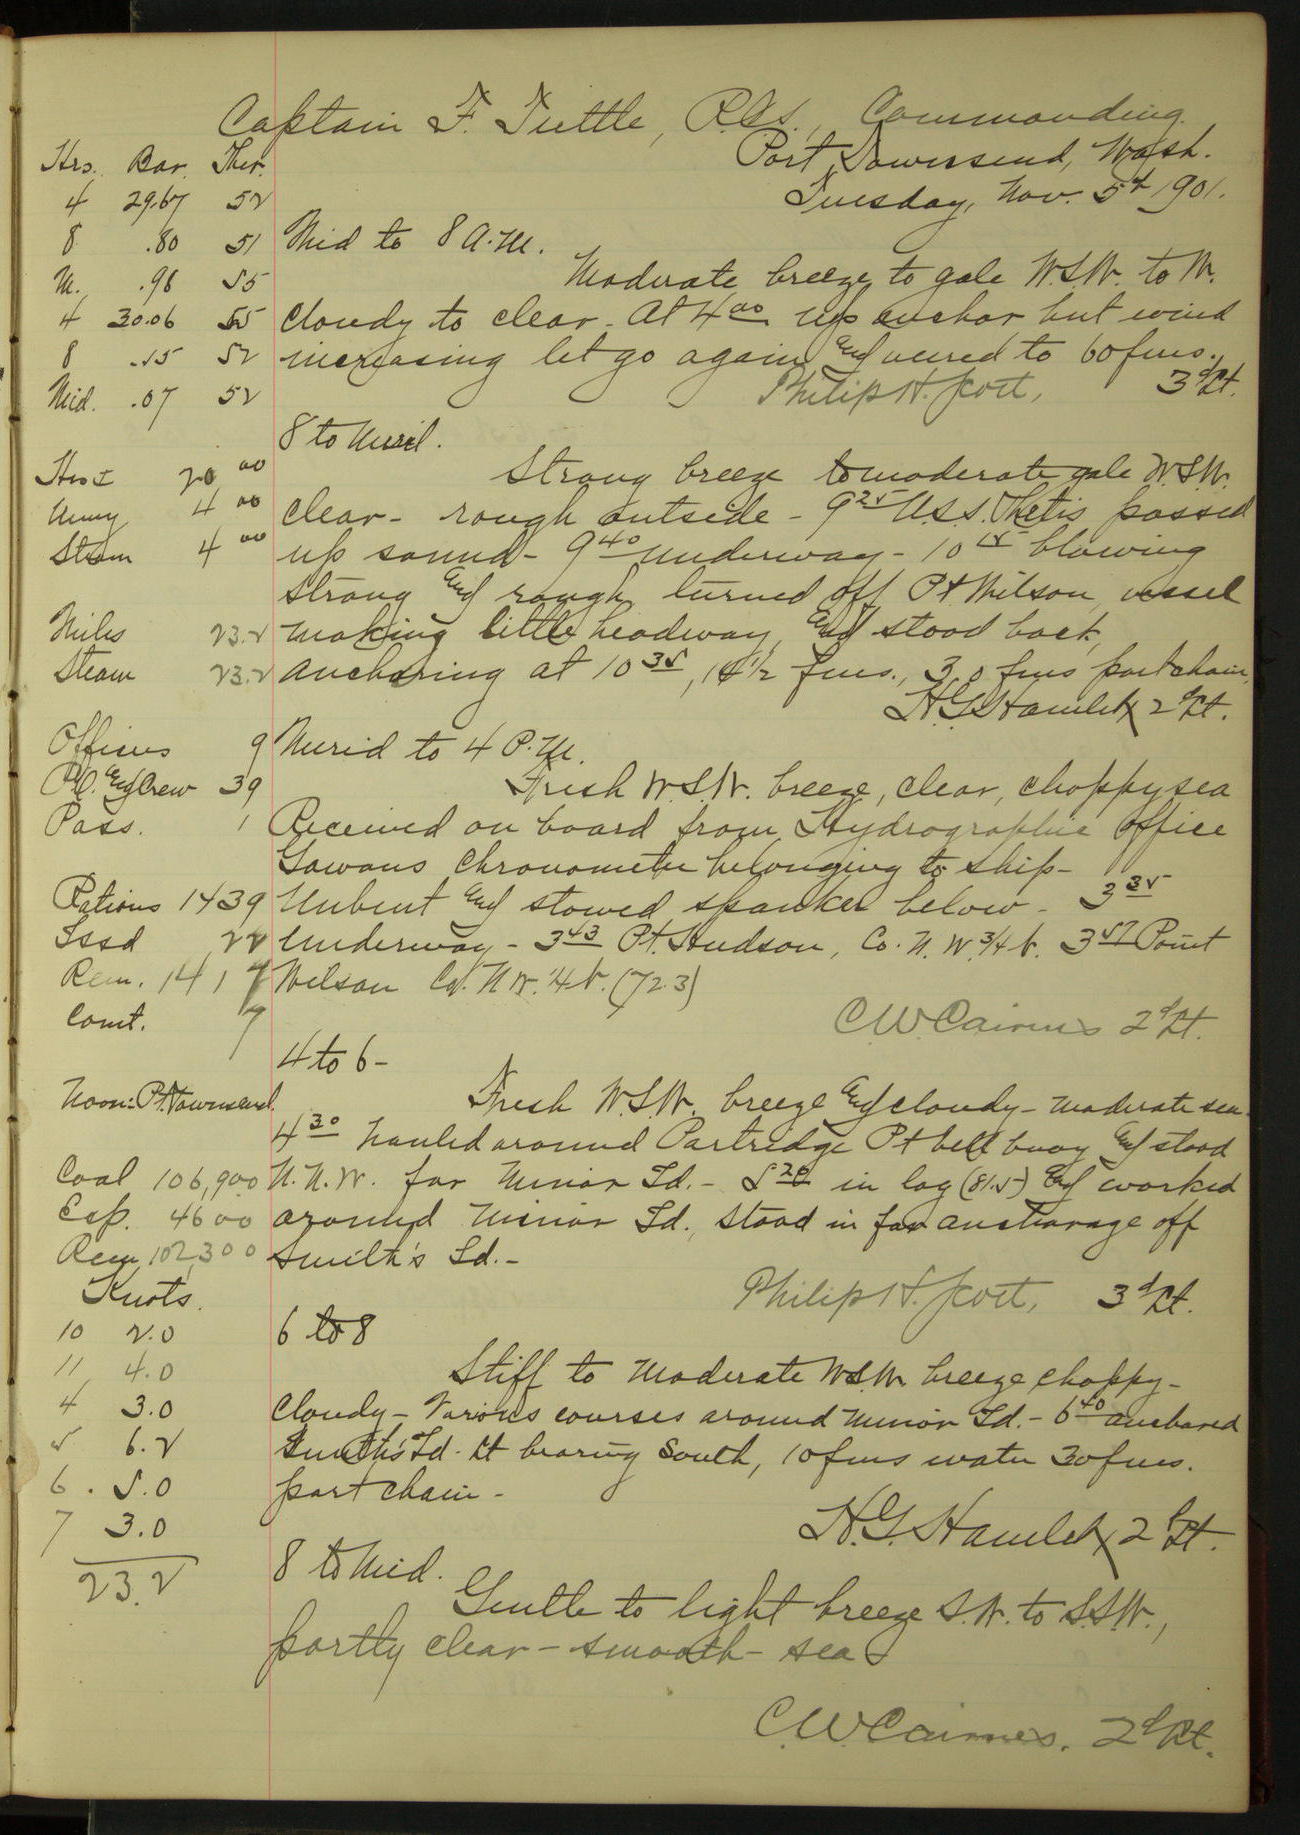 Captain F. Tuttle, R.C.S., Commanding.
Port Townsend, Wash.
Tuesday, Nov. 5th 1901.
Hrs. Bar. Ther.
4 29.67 52
8 .80 51
M. .98 55
4 30.06 55
8 .15 52
Mid. .07 52
Mid to 8 A.M.
Moderate breeze to gale W.S.W. to W.
cloudy to clear. At 4 00 up anchor but wind
increasing let go again and veered to 60 fms.
Philip H. Scott, 3d Lt.
8 to Merid.
Strong breeze to moderate gale W.S.W.
clear - rough outside - 9 25 U.S.S. Thetis passed
up sound - 9 40 underway - 10 15 blowing
strong and rough turned off Pt Wilson vessel
making little headway, and stood back,
anchoring at 10 35, 14 1/2 fms., 30 fms port chain.
H.G. Hamlet 2d Lt.
20 00
4 00
Steam 4 00
Miles 23.2
Steam 23.2
Officers 9
P.O. and Crew 39
Pass. 1
Rations 1439
Issd 22
Rem. 1417
Comt. 7
Noon: Pt. Townsend.
Coal 106,900
Exp. 4600
Rem 102,300
Knots.
10 2.0
11 4.0
4 3.0
5 6.2
6 . 5.0
7 3.0
23.2
Merid to 4 P.M.
Fresh W.S.W. breeze, clear, choppy sea
Received on board from Hydrographic Office
Gowans chronometer belonging to ship -
Unbent and stowed spanker below - 3 35
underway - 3 43 Pt. Hudson, Co. N.W. 3/4 N. 3 57 Point
Wilson Co. N.W. 1/4 N. (72.3)
C.W. Cairnes 2d Lt.
4 to 6 -
Fresh W.S.W. breeze and cloudy - moderate sea -
4 30 hauled around Partridge Pt bell buoy and stood
N.N.W. for Minor Id. - 5 20 in log (81.5) and worked
around Minor Id., stood in for anchorage off
Smith's Id. -
Philip H. Scott, 3d Lt.
6 to 8
Stiff to moderate W.S.W. breeze choppy -
cloudy - Various courses around Minor Id. - 6 40 anchored
Smith's Id. Lt bearing South, 10 fms water 30 fms.
port chain -
H.G. Hamlet 2d Lt.
8 to Mid.
Gentle to light breeze S.W. to S.S.W.,
partly clear - smooth - sea
C.W. Cairnes. 2d Lt.